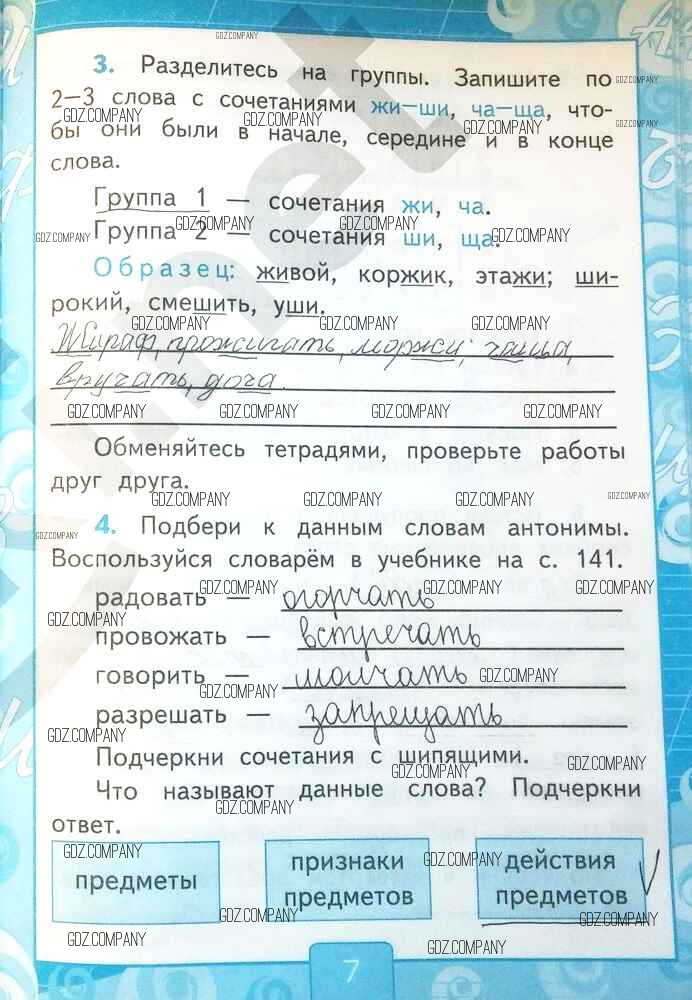 3. Разделитесь на группы. Запишите по
2—3 слова с сочетаниями жи—ши, ча—ща, что-
бы они были в начале, середине и в конце
слова.
Группа 1 — сочетания жи, ча.
Группа 2 — сочетания ши, ща.
Образец: живой, коржик, этажи; ши-
рокий, смешить, уши.
Жираф, прожигать, моржи; чаща,
вручать, доча.
Обменяйтесь тетрадями, проверьте работы
друг друга.
4. Подбери к данным словам антонимы.
Воспользуйся словарём в учебнике на с. 141.
радовать — огорчать
провожать — встречать
говорить — молчать
разрешать — запрещать
Подчеркни сочетания с шипящими.
Что называют данные слова? Подчеркни
ответ.
предметы
признаки
предметов
действия
предметов
7
GDZ.COMPANY